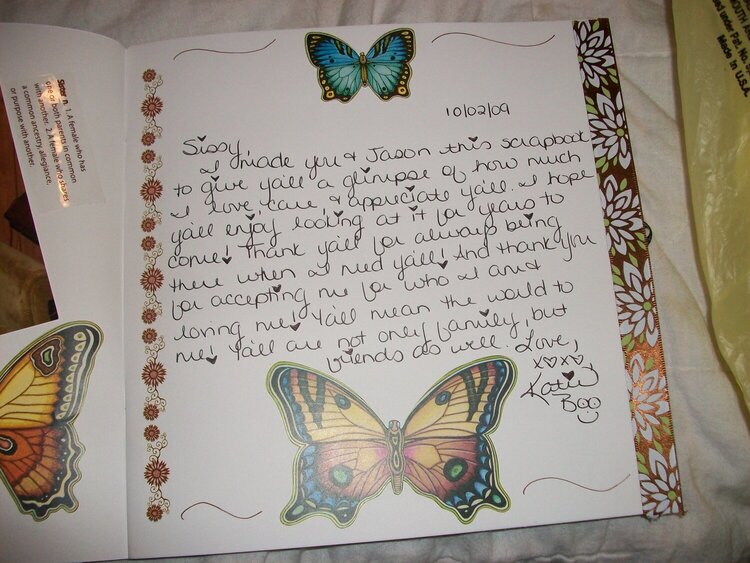 Sister n. 1. A female who has
one or both parents in common
with another. 2. A female who shares
a common ancestry, allegiance,
or purpose with another.
10/02/09
Sissy,
I made you & Jason this scrapbook
to give ya'll a glimpse of how much
I love, care, & appriciate ya'll. I hope
ya'll enjoy looking at it for years to
come! Thank ya'll for always being
there when I need ya'll! And thank you
for accepting me for who I am &
loving me! Ya'll mean the world to
me! Ya'll are not only family, but
friends as well. Love,
XOXO
Katie
Boo
Made in U.S.A.